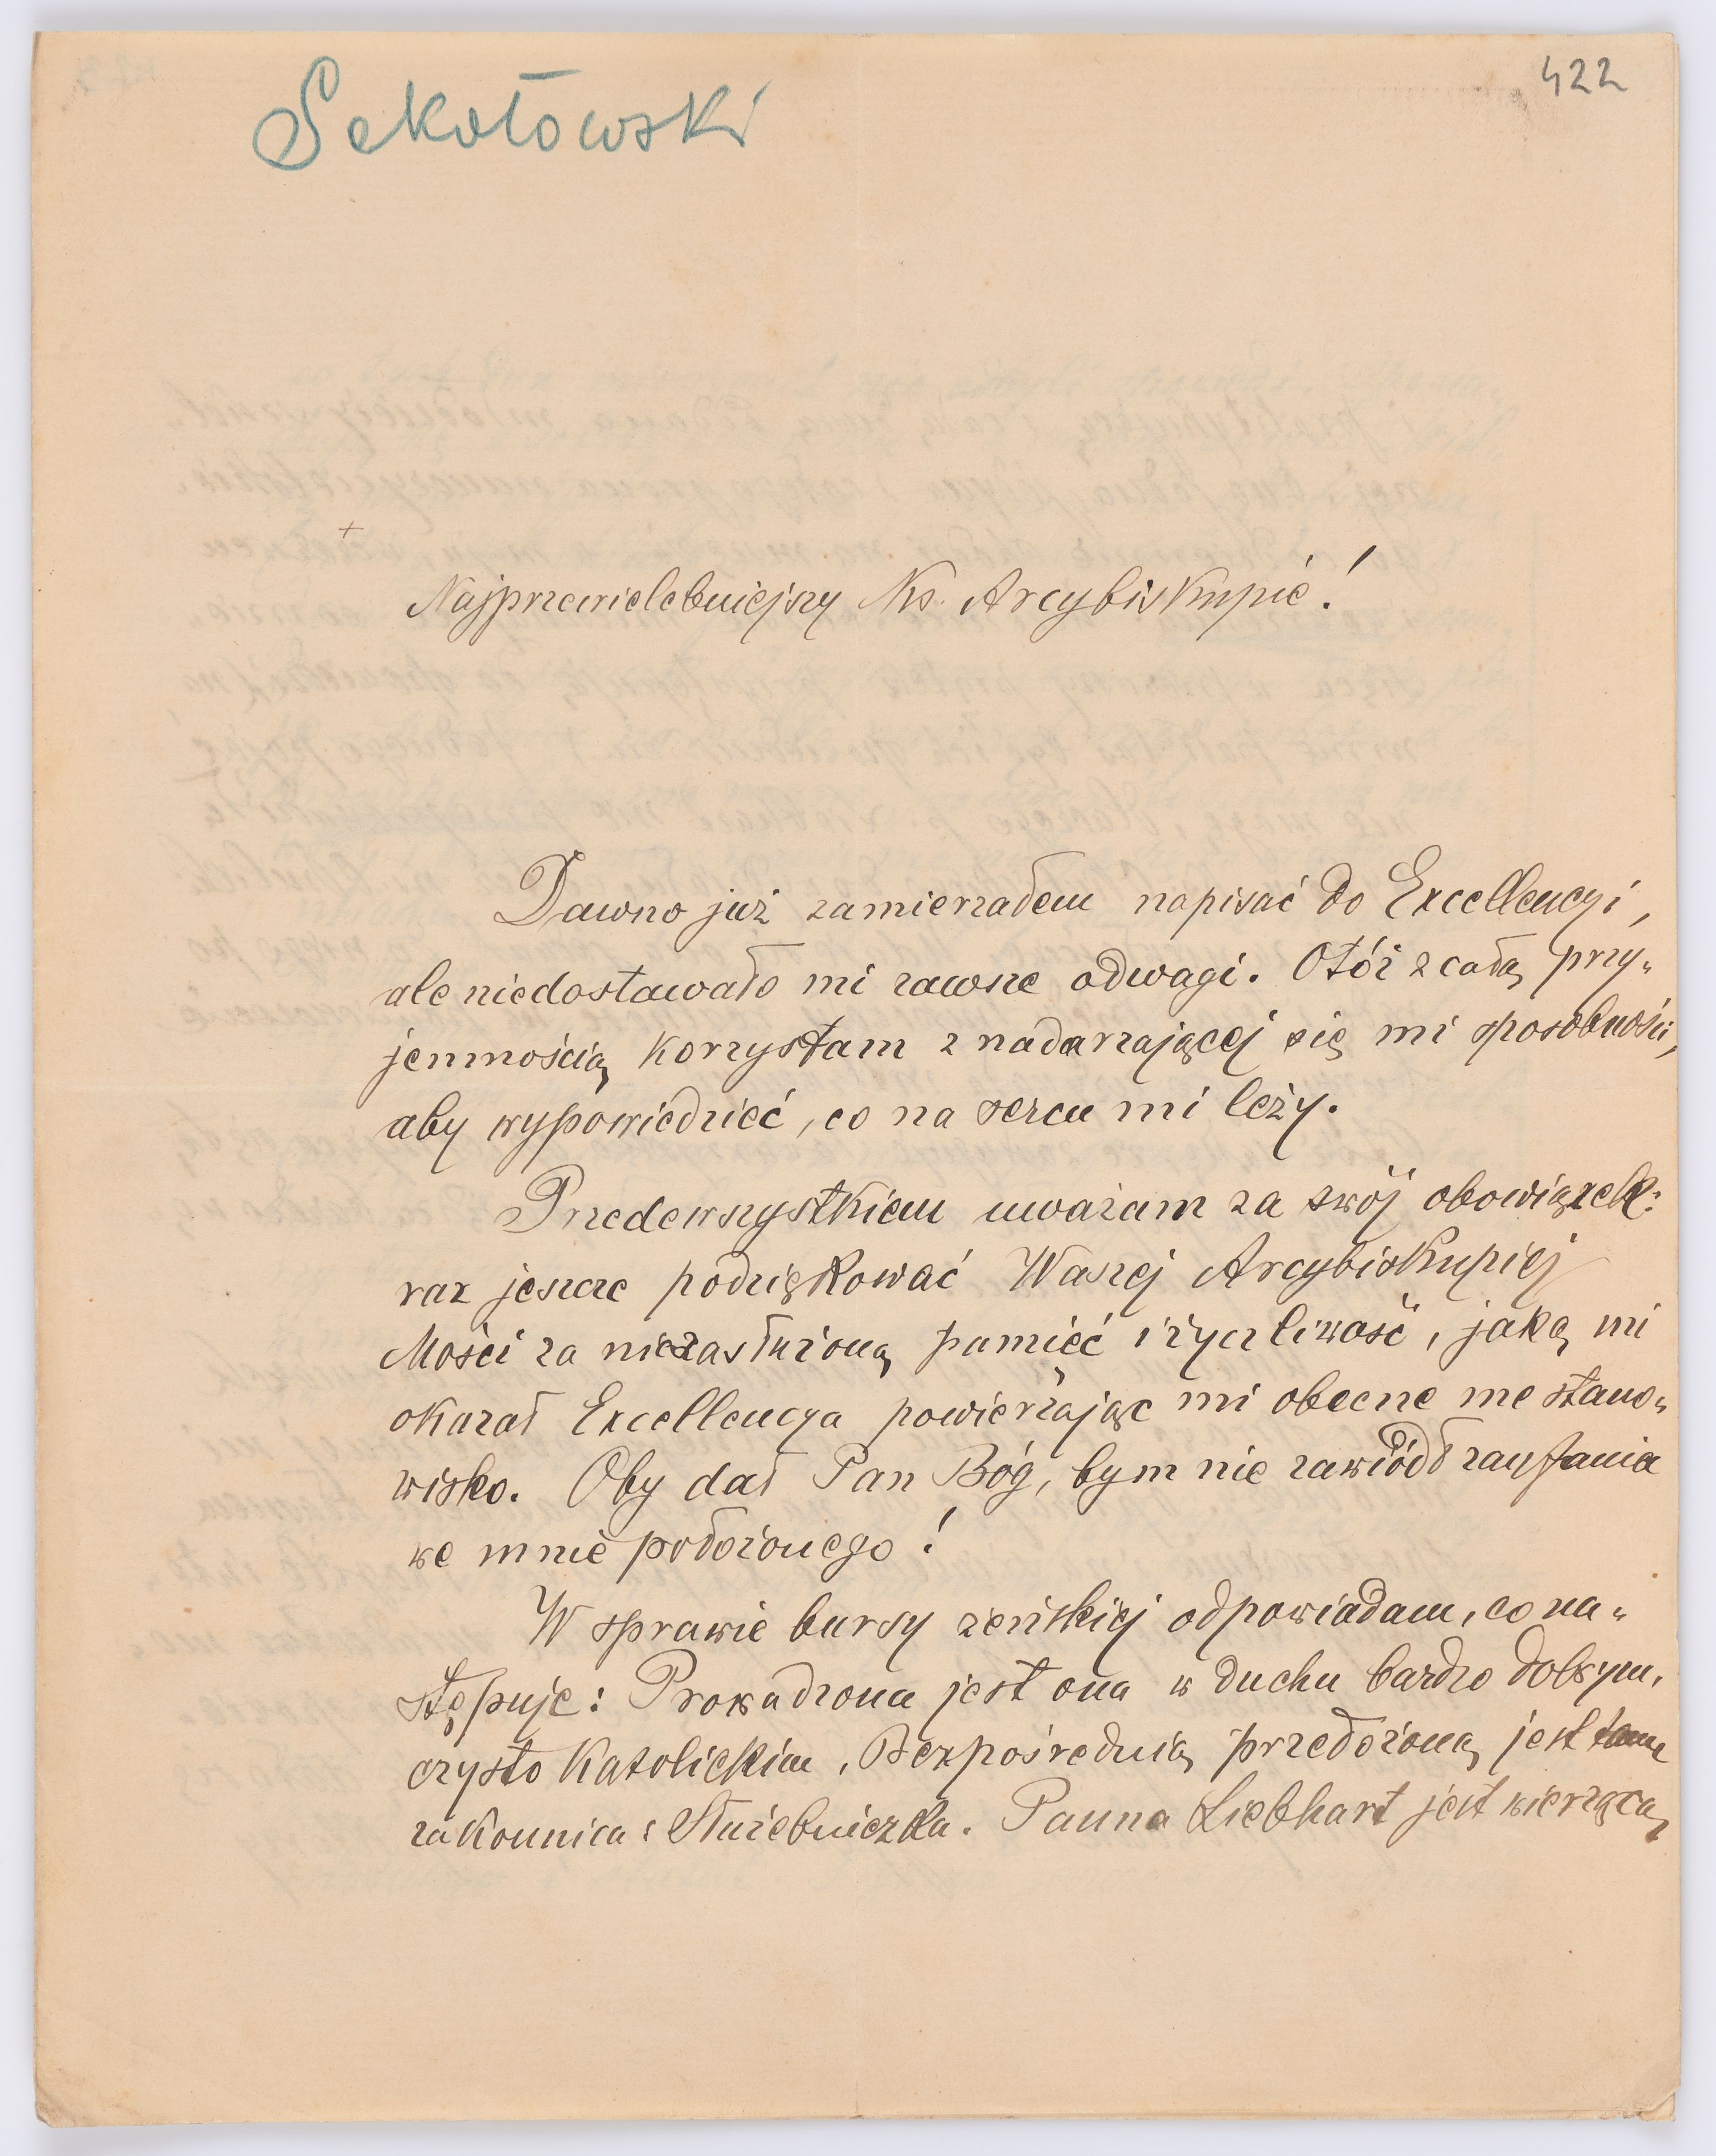 Sokołowski
422
+
Najprzewielebniejszy Ks. Arcybiskupie!
Dawno już zamierzałem napisać do Excellencyi,
ale niedostawało mi zawsze odwagi. Otóż z całą przy„
jemnością korzystam z nadarzającej się mi sposobności,
aby wypowiedzieć, co na sercu mi leży.
Przedewszystkiem uważam za swój obowiązek:
raz jeszcze podziękować Waszej Arcybiskupiej
Mości za niezasłużoną pamięć i życzliwość, jaką mi
okazał Excellencya powierzając mi obecne me stano„
wisko. Oby dał Pan Bóg, bym nie zawiódł zaufania
we mnie położonego!
W sprawie bursy żeńskiej odpowiadam, co na„
stępuje: Prowadzona jest ona w duchu bardzo dobrym,
czysto katolickim. Bezpośrednią przełożoną jest tam
zakonnica: Służebniczka. Panna Liebhart jest wierzącą